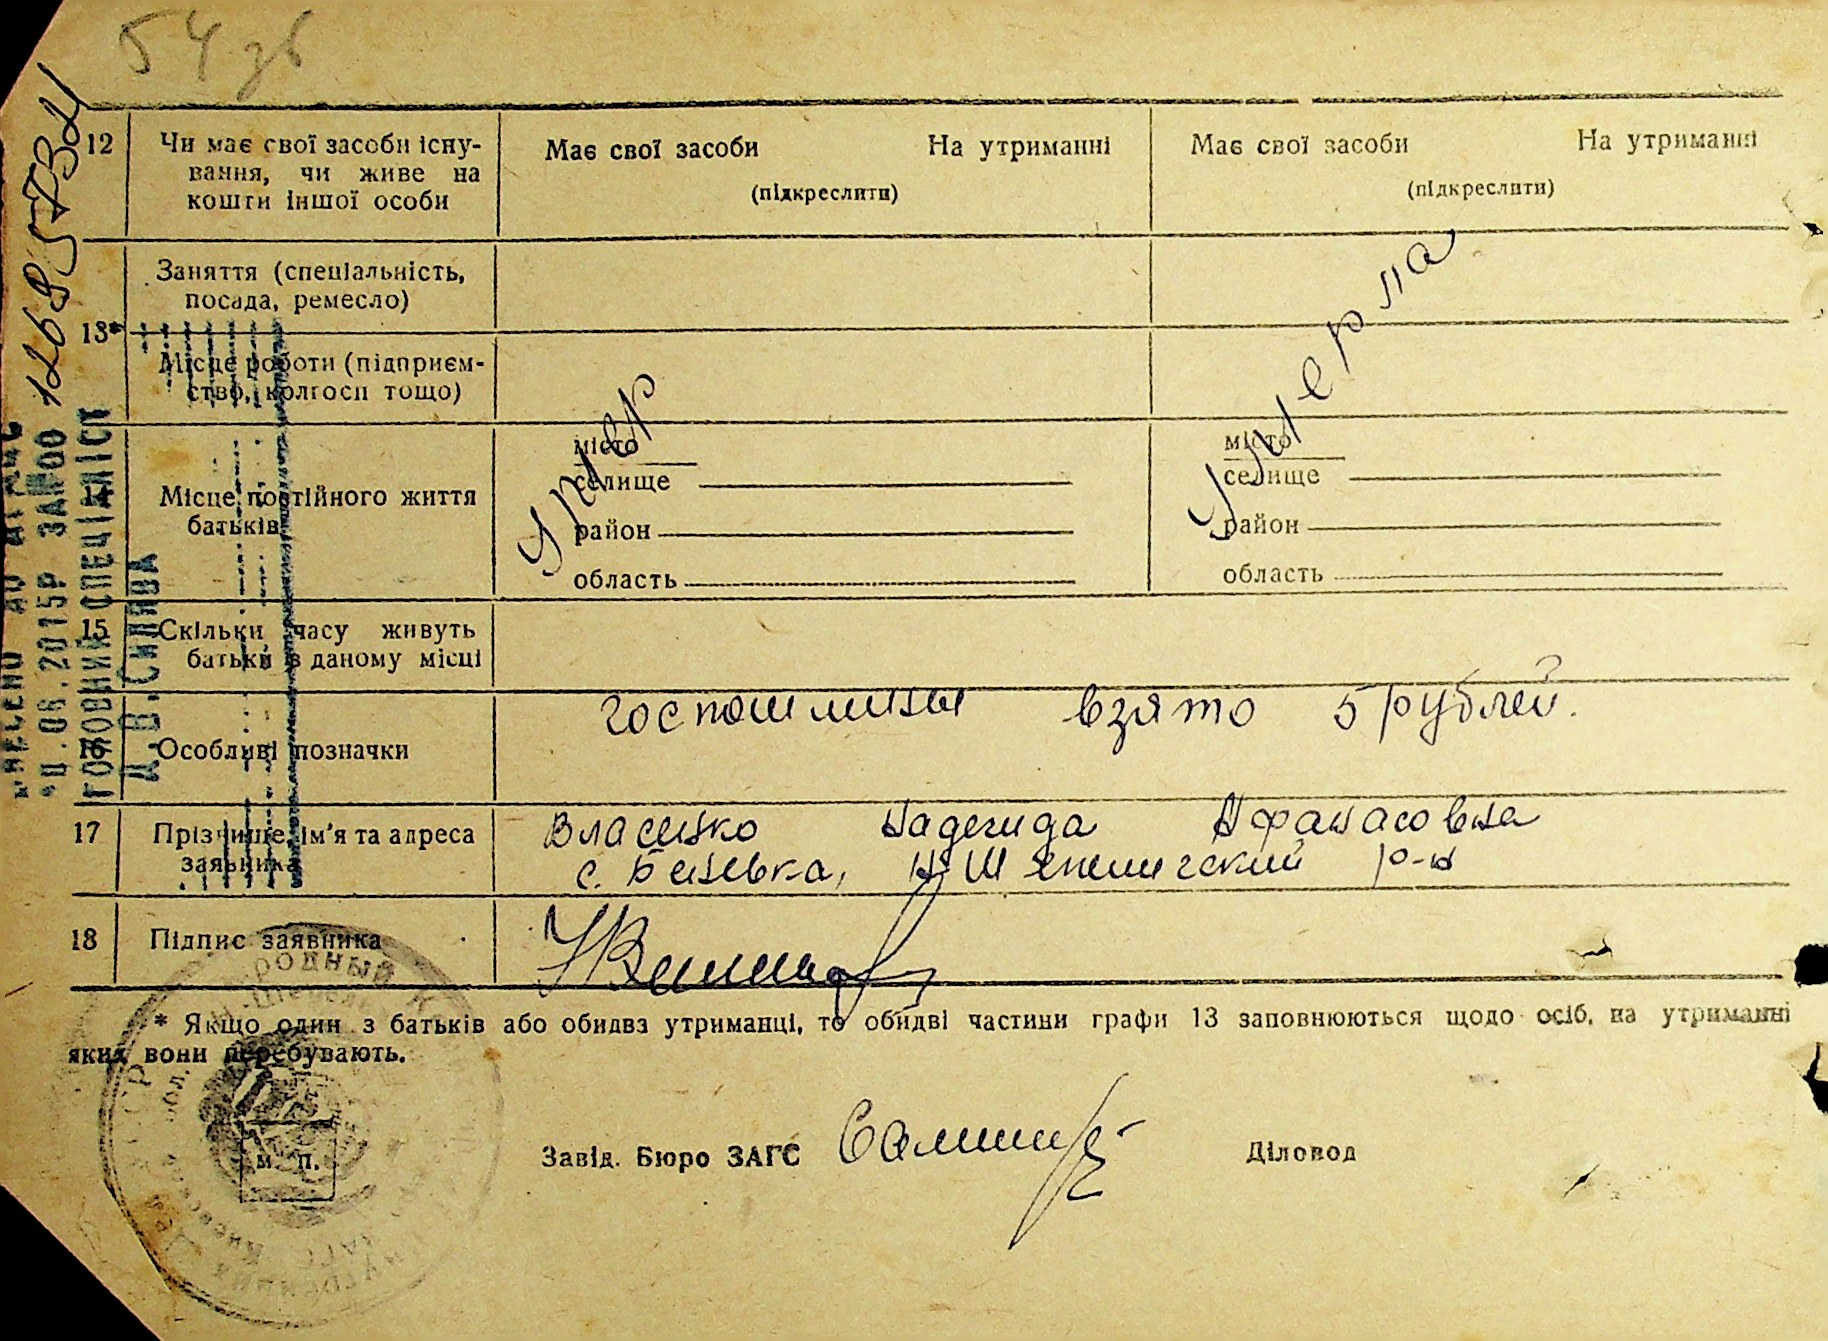 54 зв
12 Чи має свої засоби існу-
вання, чи живе на
кошти іншої особи
Має свої засоби На утриманні
(підкреслити)
Має свої засоби На утриманні
(підкреслити)
13*
Заняття (спеціальність,
посада, ремесло)
Місце роботи (підприєм-
ство, колгосп тощо)
умер
умерла
14 Місце постійного життя
батьків
місто
селище
район
область
місто
селище
район
область
15 Скільки часу живуть
батьки в даному місці
16 Особливі позначки
госпошлины взято 5 рублей.
17 Прізвище, ім'я та адреса
заявника
Власенко Надежда Афанасовна
с. р-н
18 Підпис заявника
* Якщо один з батьків або обидва утриманці, то обидві частини графи 13 заповнюються щодо осіб, на утриманні
яких вони перебувають.
м. п.
Завід. Бюро ЗАГС
Діловод
06.2015Р
ГОЛОВНИЙ СПЕЦІАЛІСТ